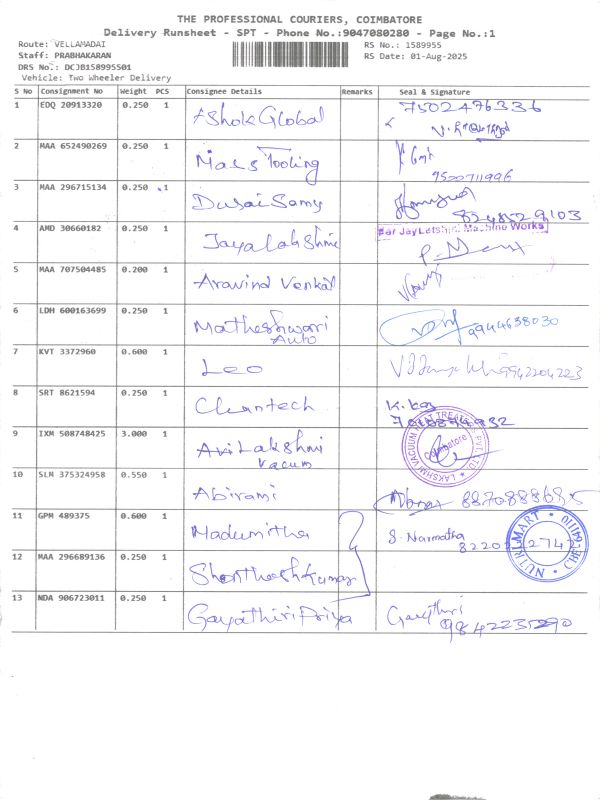 THE PROFESSIONAL COURIERS, COIMBATORE
Delivery Runsheet - SPT - Phone No.:9047080280 - Page No.:1
Route: VELLAMADAI RS No.: 1589955
Staff: PRABHAKARAN RS Date: 01-Aug-2025
DRS No.: DCJB158995501
Vehicle: Two Wheeler Delivery
S No Consignment No Weight PCS Consignee Details Remarks Seal & Signature
1 EDQ 20913320 0.250 1 Ashok Global 7502476336
2 MAA 652490269 0.250 1 Maes Tooling
9520711996
3 MAA 296715134 0.250 1 Durai Samy
8248529103
4 AMD 30660182 0.250 1 Jayalakshmi Machine Works
5 MAA 707504485 0.200 1 Aravind Venkat
6 LDH 600163699 0.250 1 Matheshwari 9944638030
Auto
7 KVT 3372960 0.600 1 Leo 9942204223
8 SRT 8621594 0.250 1 Cleantech
9 IXM 508748425 3.000 1 Avi Lakshmi
Vacuum
LAKSHMI VACUUM HEAT TREATERS PVT. LTD.
Coimbatore
10 SLM 375324958 0.550 1 Abirami
11 GPM 489375 0.600 1 Madumitha S. Narmatha
NUTRI MART
12 MAA 296689136 0.250 1 Shanthosh Kumar
13 NDA 906723011 0.250 1 Gayathiri Priya Gayathiri
9842235290